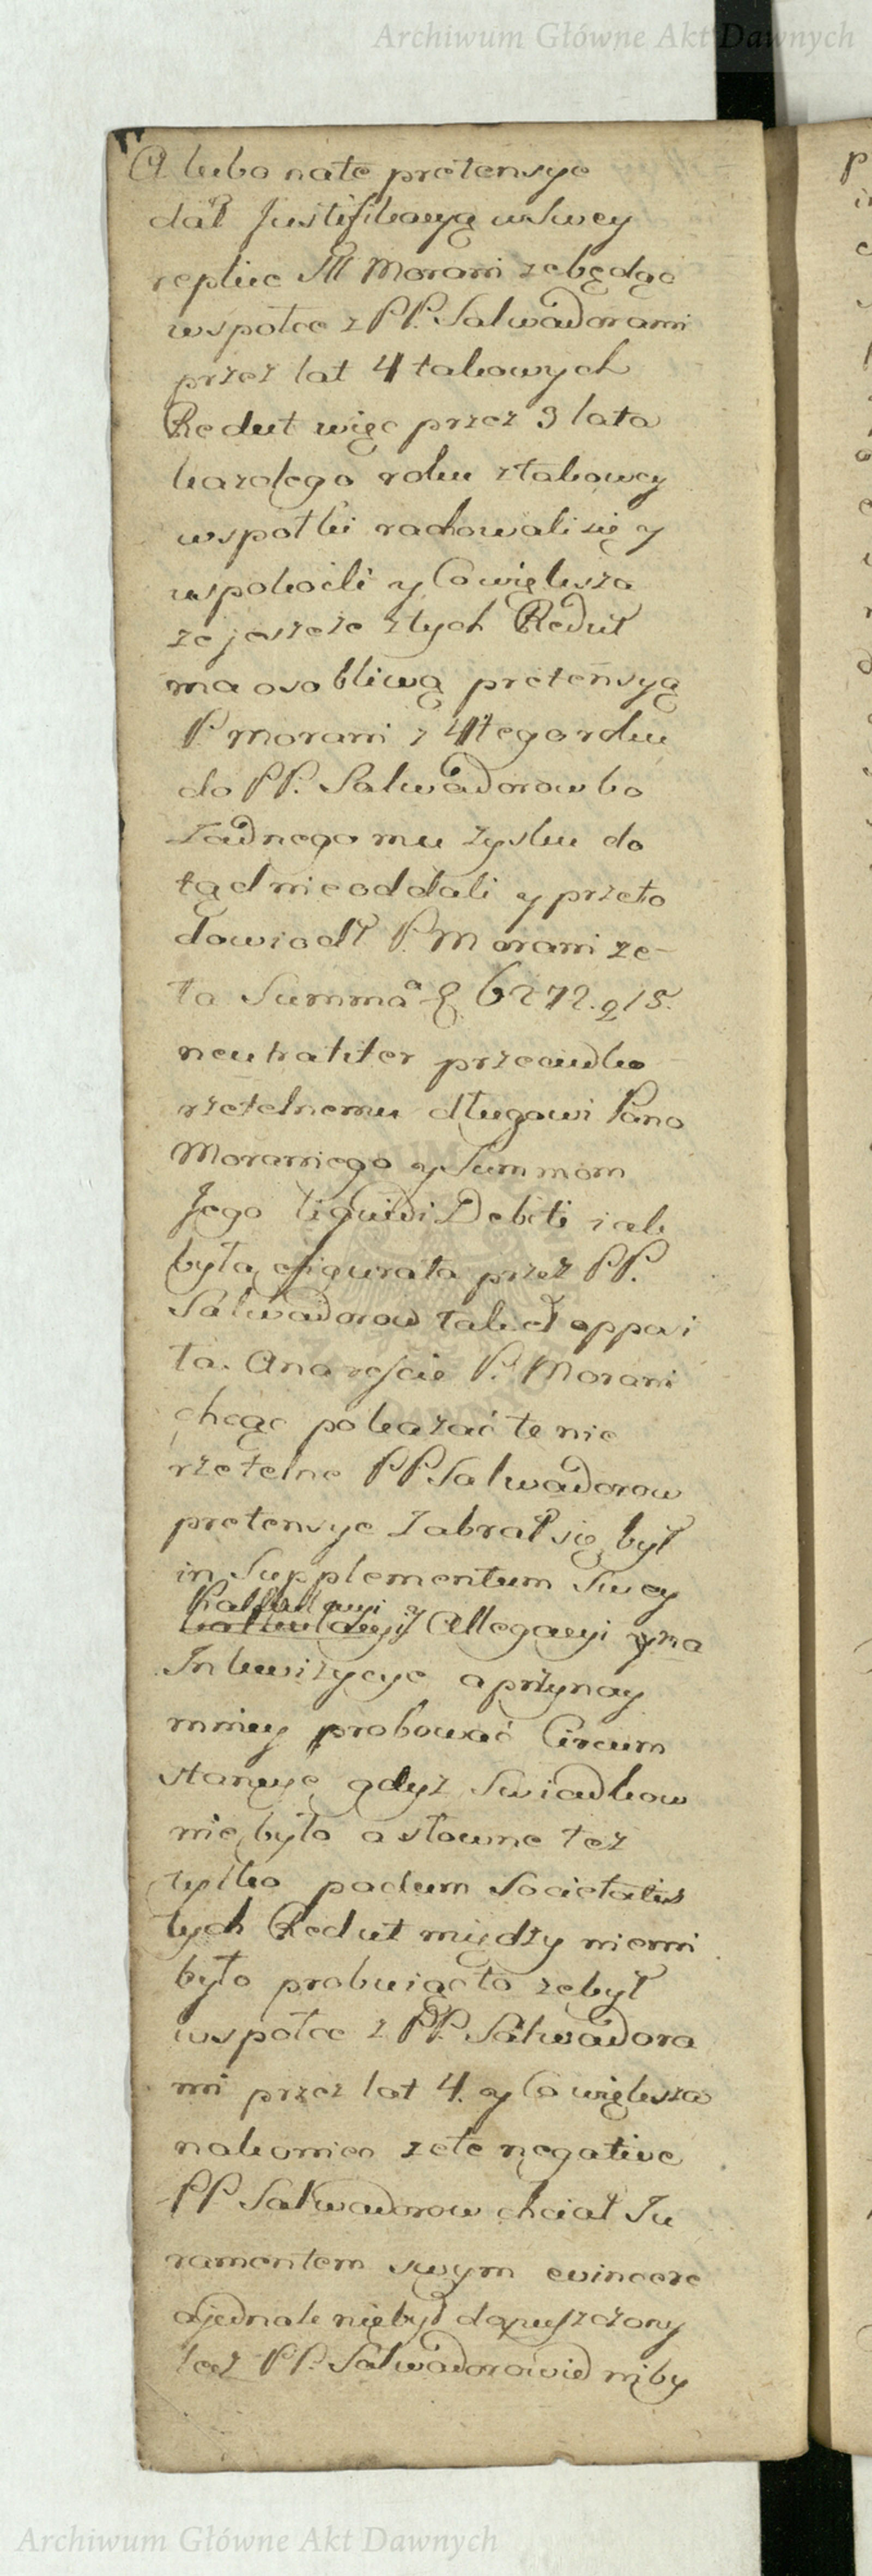 Archiwum Główne Akt Dawnych
A lubo natę pretensye
dał Justifikacyą wswey
replice JM Morani zebędąc
wspołce z PP. Salwadorami
przez lat 4 takowych
Redut więc przez 3 lata
kazdego roku ztakowey
wspołki rachowali się y
uspokoili y Cowiększa
ze jeszcze ztych Redut
ma osobliwą pretensyą
P. Morani z 4tego roku
do PP. Salwadorow bo
zadnego mu zysku do
tąd nieoddali y przeto
dowiodł P. Morani ze
ta Summa 6272. g 15.
neutraliter przeciwko
rzetelnemu długowi Pana
Moraniego y Summom
Jego liquidi Debiti iak
była ofigurata przez PP.
Salwadorow takeż oppoi
ta. Anareście P. Morani
chcąc pokazać te nie
rzetelne PP Salwadorow
pretensye Zabrał się był
in Supplementum Swey
Kalkulacyi
Allegacyi y na
Inkwizycye aprzynay
mniey probować Circum
stancye gdyz Swiadkow
nie było a słowne tez
tylko pactum Societatis
tych Redut między niemi
było probuiąc to zebył
wspołce z PP. Salwadora
mi przez lat 4. y Co większa
nakoniec zete negative
PP Salwadorow chciał Ju
ramentem swym evincere
ajednak niebył dopuszczony
lecz PP. Salwadorowie niby
Archiwum Główne Akt Dawnych